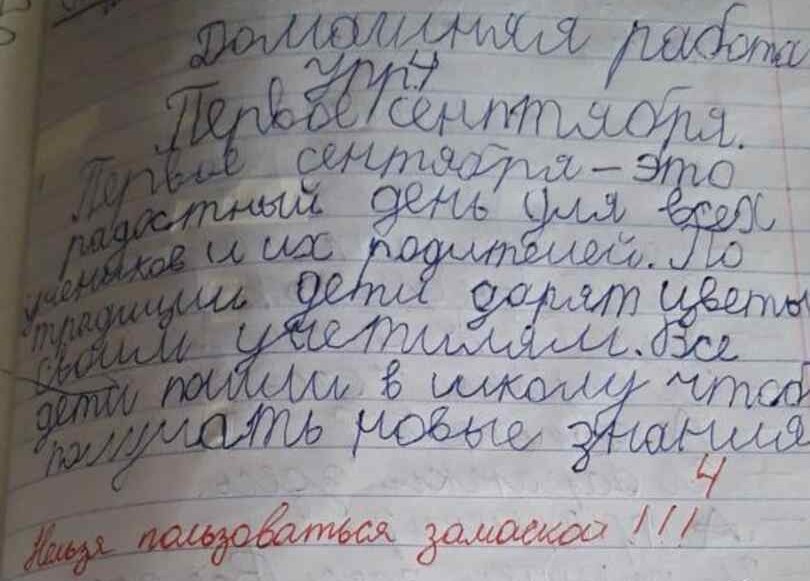 Домашняя работа
Упр.4
Первое сентября.
Первое сентября – это
радостный день для всех
учеников и их родителей. По
традиции дети дарят цветы
своим учетилям. Все
дети пошли в школу чтоб
получать новые знания
4
Нельзя пользоваться замаской !!!